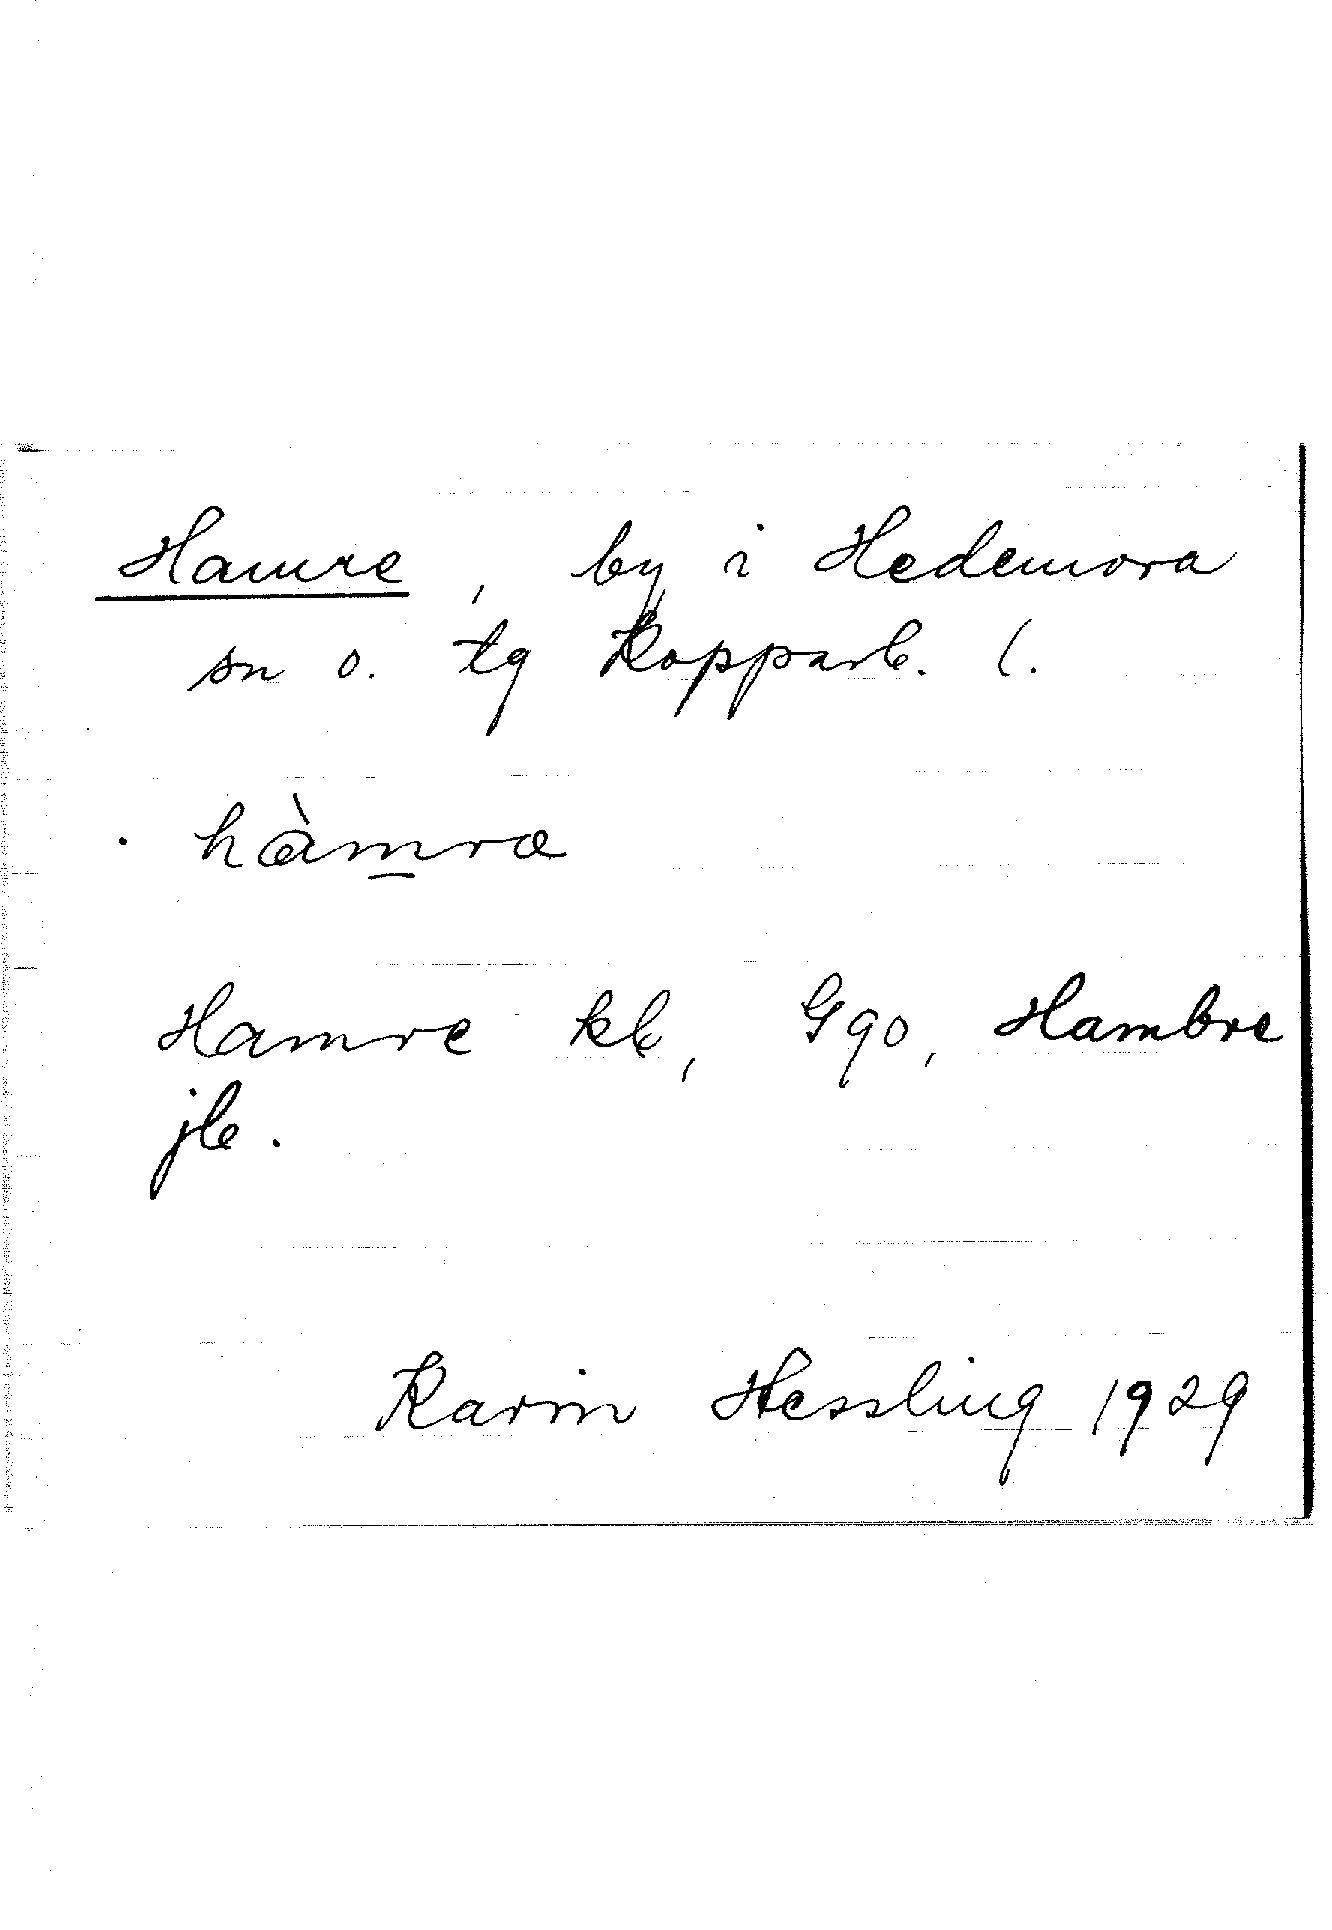 Hamre, by i Hedemora
sn o. tg Kopparb. l.
hàm̲ræ
Hamre kb, Ggo, Hambre
jb.
Karin Hessling 1929